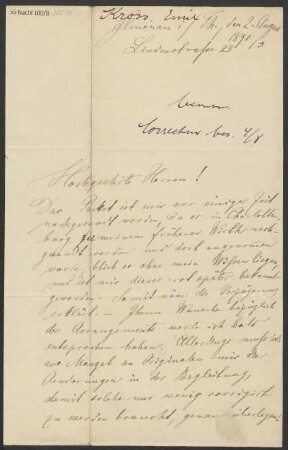 Kross, Emil
Ilmenau i/Th. den 2. August
1891
Lindenstrasse 28
Correctur bes. 4/8
Hochgeehrte Herren!
Das Packet ist mir vor einiger Zeit
nachgesandt worden, da er in Charlotten
burg meinem früheren Wirth nach-
gesandt worden und dort angenommen
blieb es ohne mein Wissen liegen
und ist mir dieser erst später bekannt
geworden. Somit wäre die Verzögerung
erklärt. — Ihrem Wunsche bezüglich
der Arrangements werde ich bald
entsprochen haben. Allerdings muss ich
aus Mangel an Originalen mir die
Aenderungen in der Begleitung,
damit solche nur wenig corrigirt
zu werden braucht, genau überlegen.